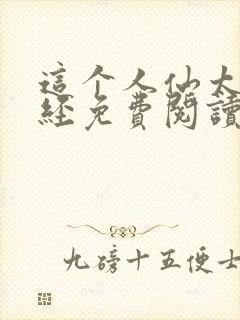 這个人仙太
經免費閱讀
九磅十五便士